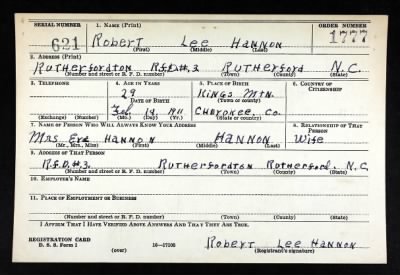 SERIAL NUMBER 1. NAME (Print) ORDER NUMBER
621 Robert Lee Hannon 1777
(First) (Middle) (Last)
2. ADDRESS (Print)
Rutherfordton R.f.d.#.3 Rutherford N.C.
(Number and street or R. F. D. number) (Town) (County) (State)
3. TELEPHONE 4. AGE IN YEARS 5. PLACE OF BIRTH 6. COUNTRY OF CITIZENSHIP
29 Kings Mtn.
DATE OF BIRTH (Town or county)
Feb 14 1911 Cherokee, Co.
(Exchange) (Number) (Mo.) (Day) (Yr.) (State or country)
7. NAME OF PERSON WHO WILL ALWAYS KNOW YOUR ADDRESS 8. RELATIONSHIP OF THAT PERSON
Mrs Eva Hannon Hannon Wife
(Mr., Mrs., Miss) (First) (Middle) (Last)
9. ADDRESS OF THAT PERSON
R.f.D.#.3. Rutherfordton Rutherford. N.C.
(Number and street or R. F. D. number) (Town) (County) (State)
10. EMPLOYER'S NAME
11. PLACE OF EMPLOYMENT OR BUSINESS
(Number and street or R. F. D. number) (Town) (County) (State)
I AFFIRM THAT I HAVE VERIFIED ABOVE ANSWERS AND THAT THEY ARE TRUE.
REGISTRATION CARD Robert Lee Hannon
D. S. S. Form 1 (over) 16—17105 (Registrant's signature)